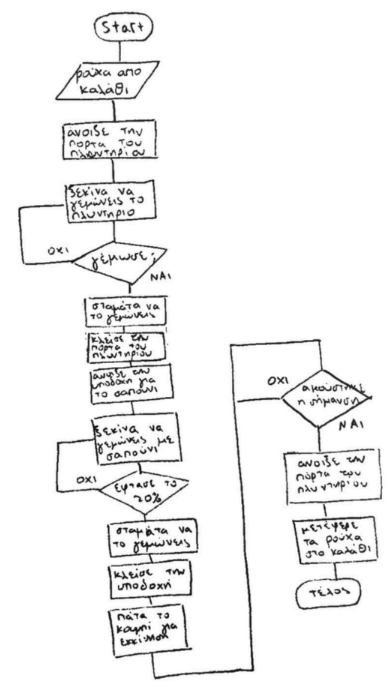 Start
ρούχα απο
καλάθι
άνοιξε την
πόρτα του
πλυντηρίου
ξεκίνα να
γεμίζεις το
πλυντήριο
γέμισε;
ΟΧΙ
ΝΑΙ
σταμάτα να
το γεμίζεις
κλείσε την
πόρτα του
πλυντηρίου
άνοιξε την
υποδοχή για
το σαπούνι
ξεκίνα να
γεμίζεις με
σαπούνι
ΟΧΙ
έφτασε το
20%
σταμάτα να
το γεμίζεις
κλείσε την
υποδοχή
πάτα το
κουμπί για
εκκίνηση
ΟΧΙ
ακούστηκε
η σήμανση
ΝΑΙ
άνοιξε την
πόρτα του
πλυντηρίου
μετέφερε
τα ρούχα
στο καλάθι
τέλος